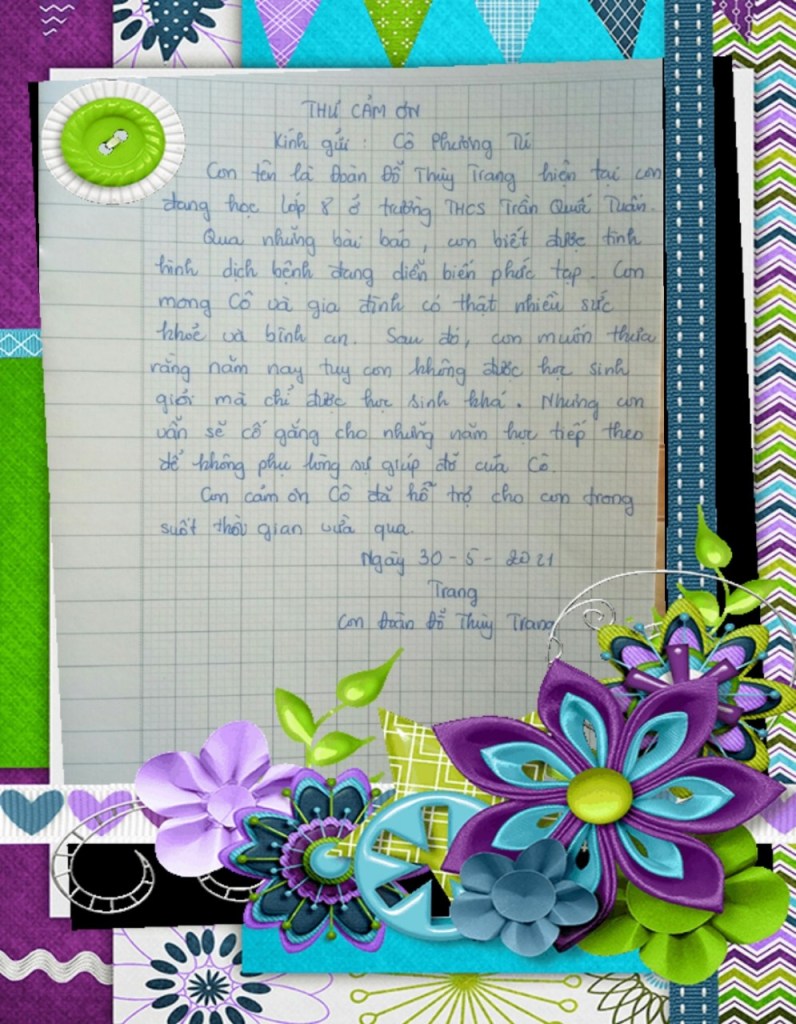 THƯ CẢM ƠN
Kính gửi : Cô Phương Tú
Con tên là Đoàn Đỗ Thùy Trang hiện tại con
đang học lớp 8 ở trường THCS Trần Quốc Tuấn.
Qua những bài báo, con biết được tình
hình dịch bệnh đang diễn biến phức tạp. Con
mong Cô và gia đình có thật nhiều sức
khoẻ và bình an. Sau đó, con muốn thưa
rằng năm nay tuy con không được học sinh
giỏi mà chỉ được học sinh khá. Nhưng con
vẫn sẽ cố gắng cho những năm học tiếp theo
để không phụ lòng sự giúp đỡ của Cô.
Con cảm ơn Cô đã hỗ trợ cho con trong
suốt thời gian vừa qua.
Ngày 30-5-2021
Trang
Con Đoàn Đỗ Thùy Trang